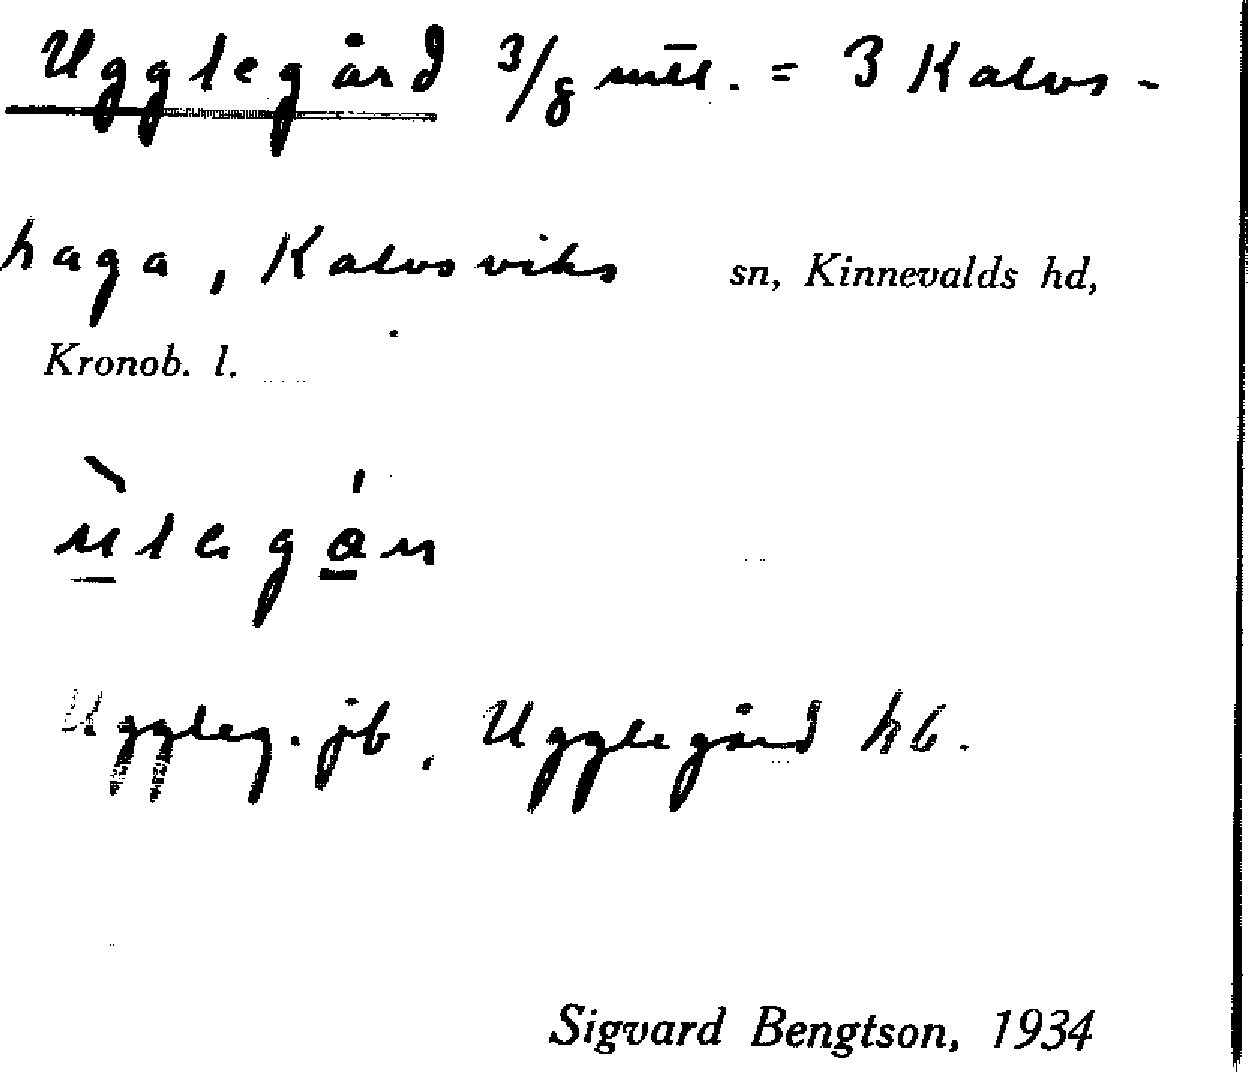 Ugglegård 3/8 mtl. = 3 Kalvs-
haga, Kalvsviks sn, Kinnevalds hd,
Kronob. l.
Uggleg. jb, Ugglegård hb.
Sigvard Bengtson, 1934